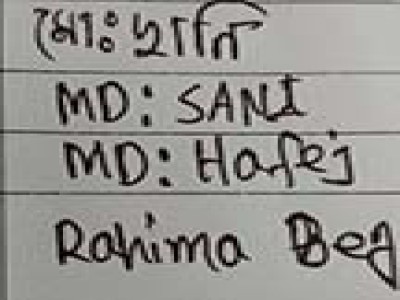 মোঃ ছানি
MD: SANI
MD: Hafej
Rahima Beg